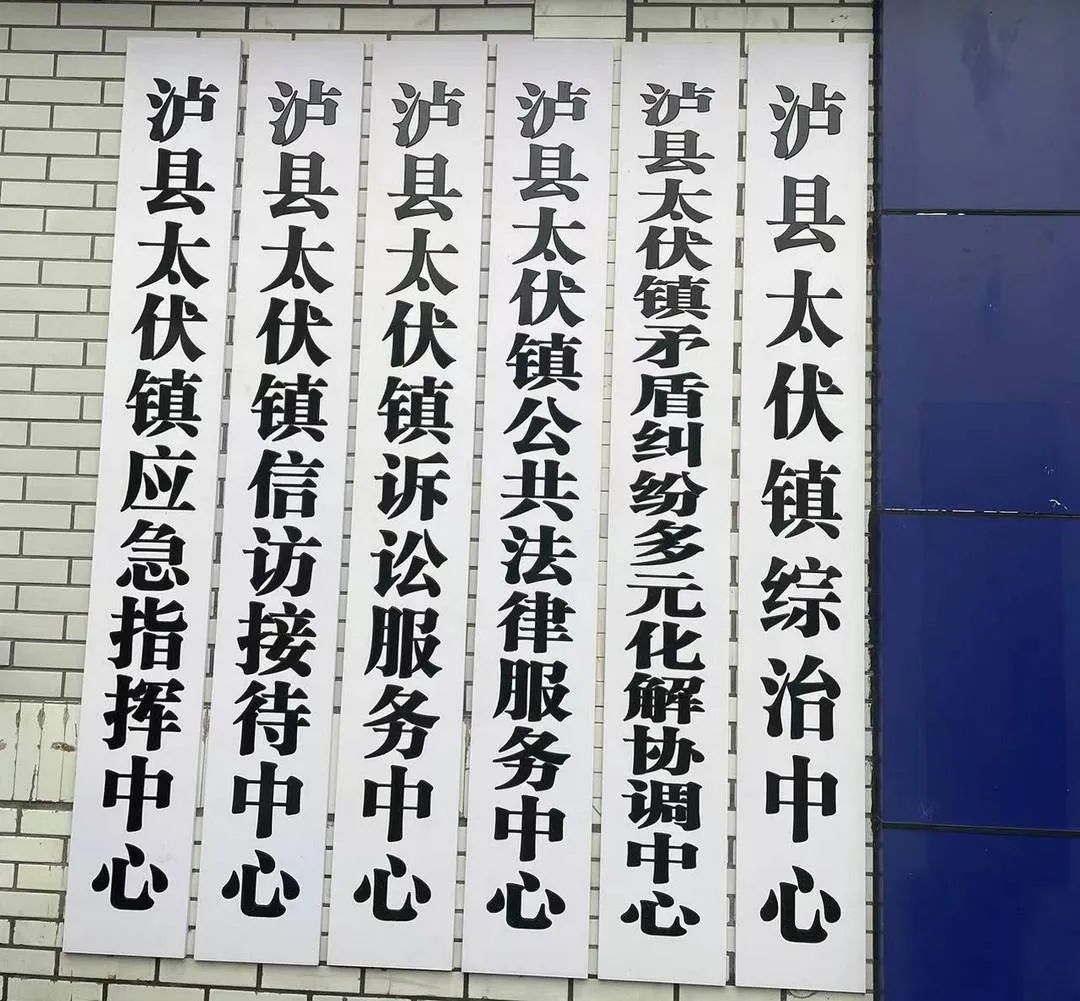 泸县太伏镇应急指挥中心
泸县太伏镇信访接待中心
泸县太伏镇诉讼服务中心
泸县太伏镇公共法律服务中心
泸县太伏镇矛盾纠纷多元化解协调中心
泸县太伏镇综治中心